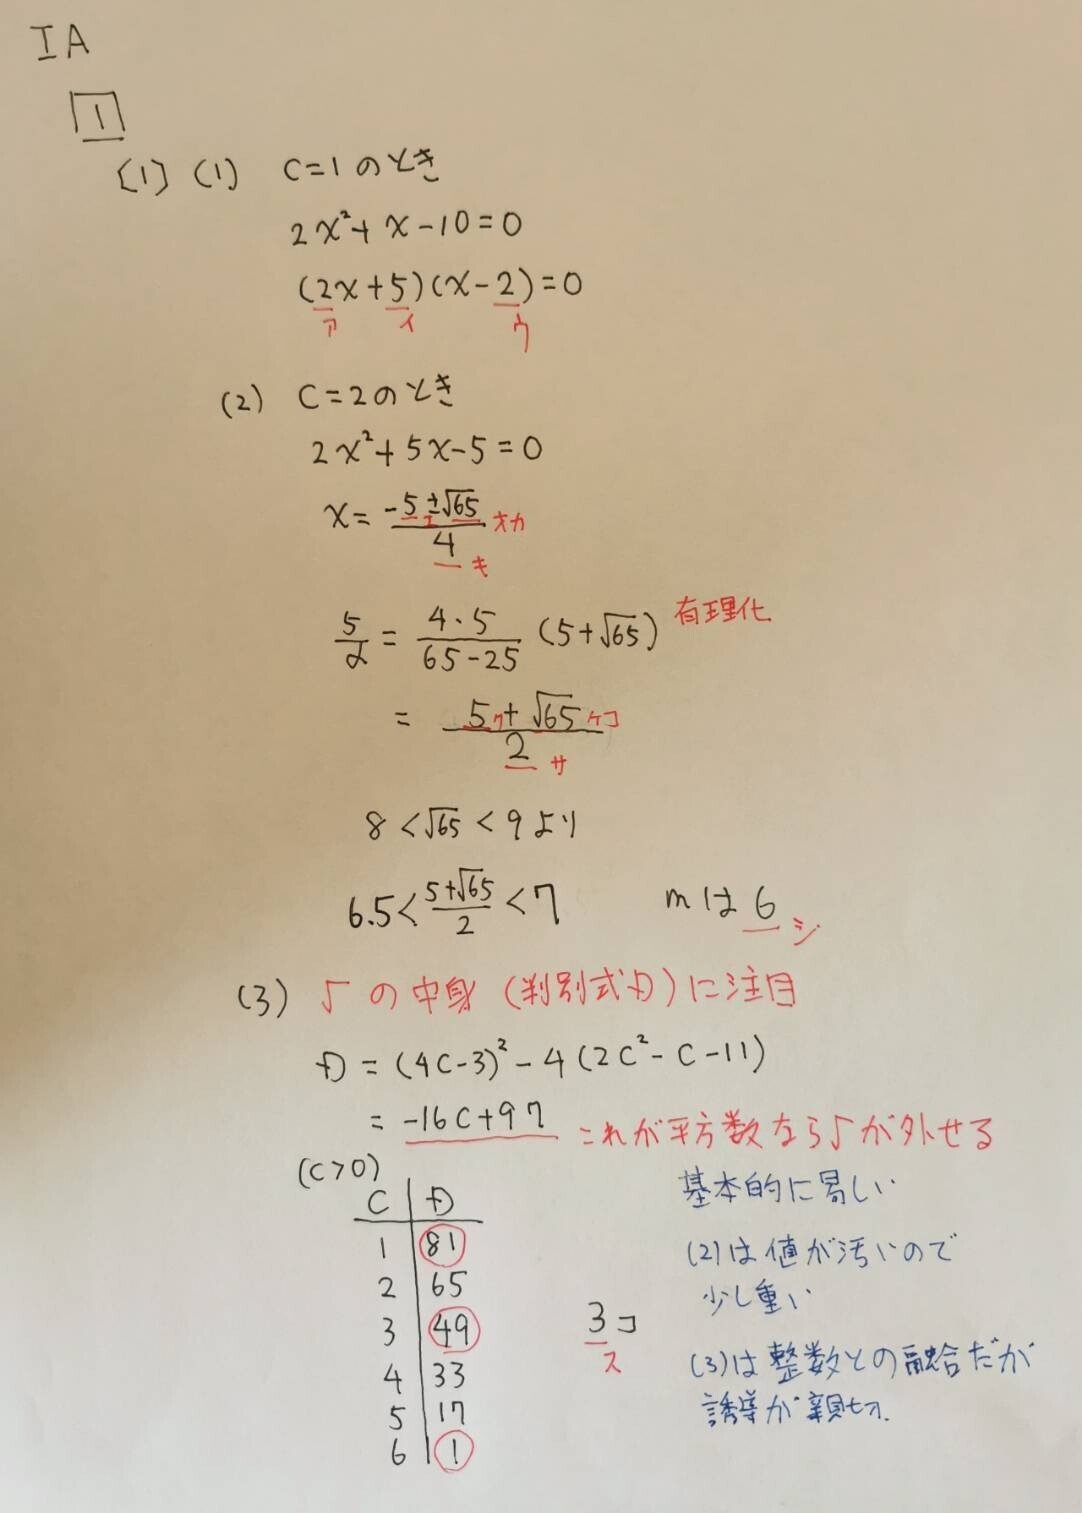 IA
1
〔1〕(1) C=1のとき
2x²+x-10=0
(2x+5)(x-2)=0
ア イ ウ
(2) C=2のとき
2x²+5x-5=0
x=(-5±√65)/4
エ オカ キ
5/α = 4·5/(65-25) (5+√65) 有理化
= (5+√65)/2
ク ケコ サ
8<√65<9より
6.5<(5+√65)/2<7 mは6
シ
(3) √の中身(判別式D)に注目
D=(4C-3)²-4(2C²-C-11)
=-16C+97 これが平方数なら√が外せる
(C>0)
C D
1 81
2 65
3 49
4 33
5 17
6 1
3コ
ス
基本的に易しい
(2)は値が汚いので
少し重い
(3)は整数との融合だが
誘導が親切.